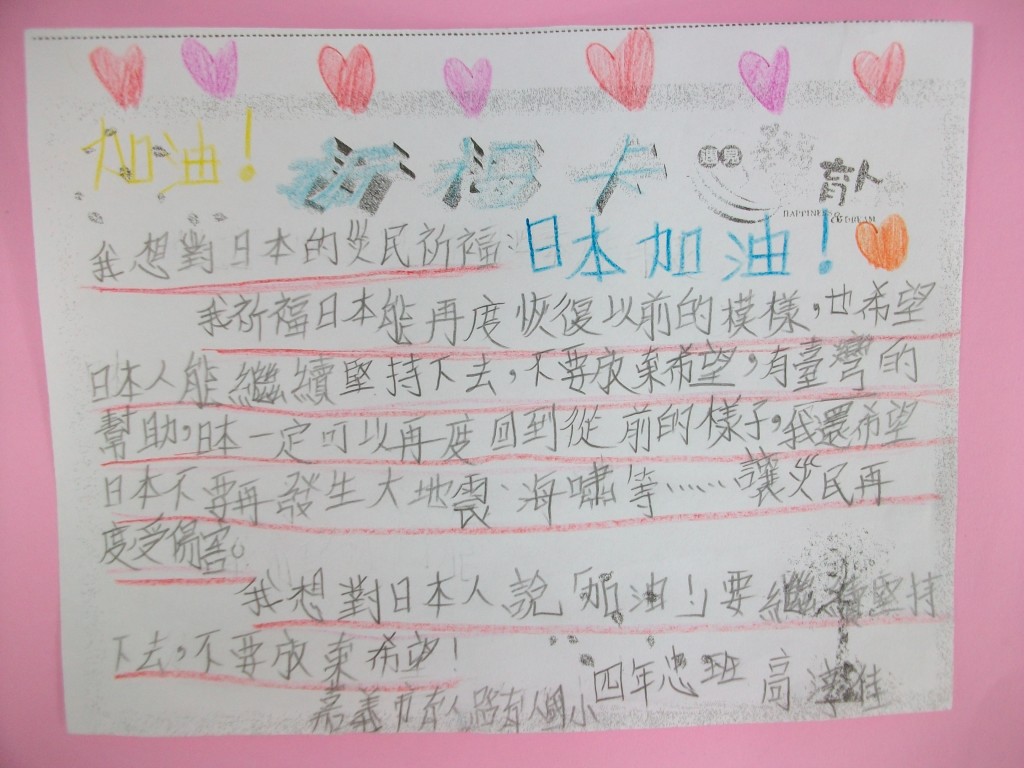 加油！
祈福卡
遇見
育人
HAPPINESS & DREAM
我想對日本的災民祈福：
日本加油！
我祈福日本能再度恢復以前的模樣，也希望
日本人能繼續堅持下去，不要放棄希望，有臺灣的
幫助，日本一定可以再度回到從前的樣子，我還希望
日本不要再發生大地震、海嘯等……讓災民再
度受傷害。
我想對日本人說「加油！」要繼續堅持
下去，不要放棄希望！
嘉義市育人國小
四年忠班 高 佳